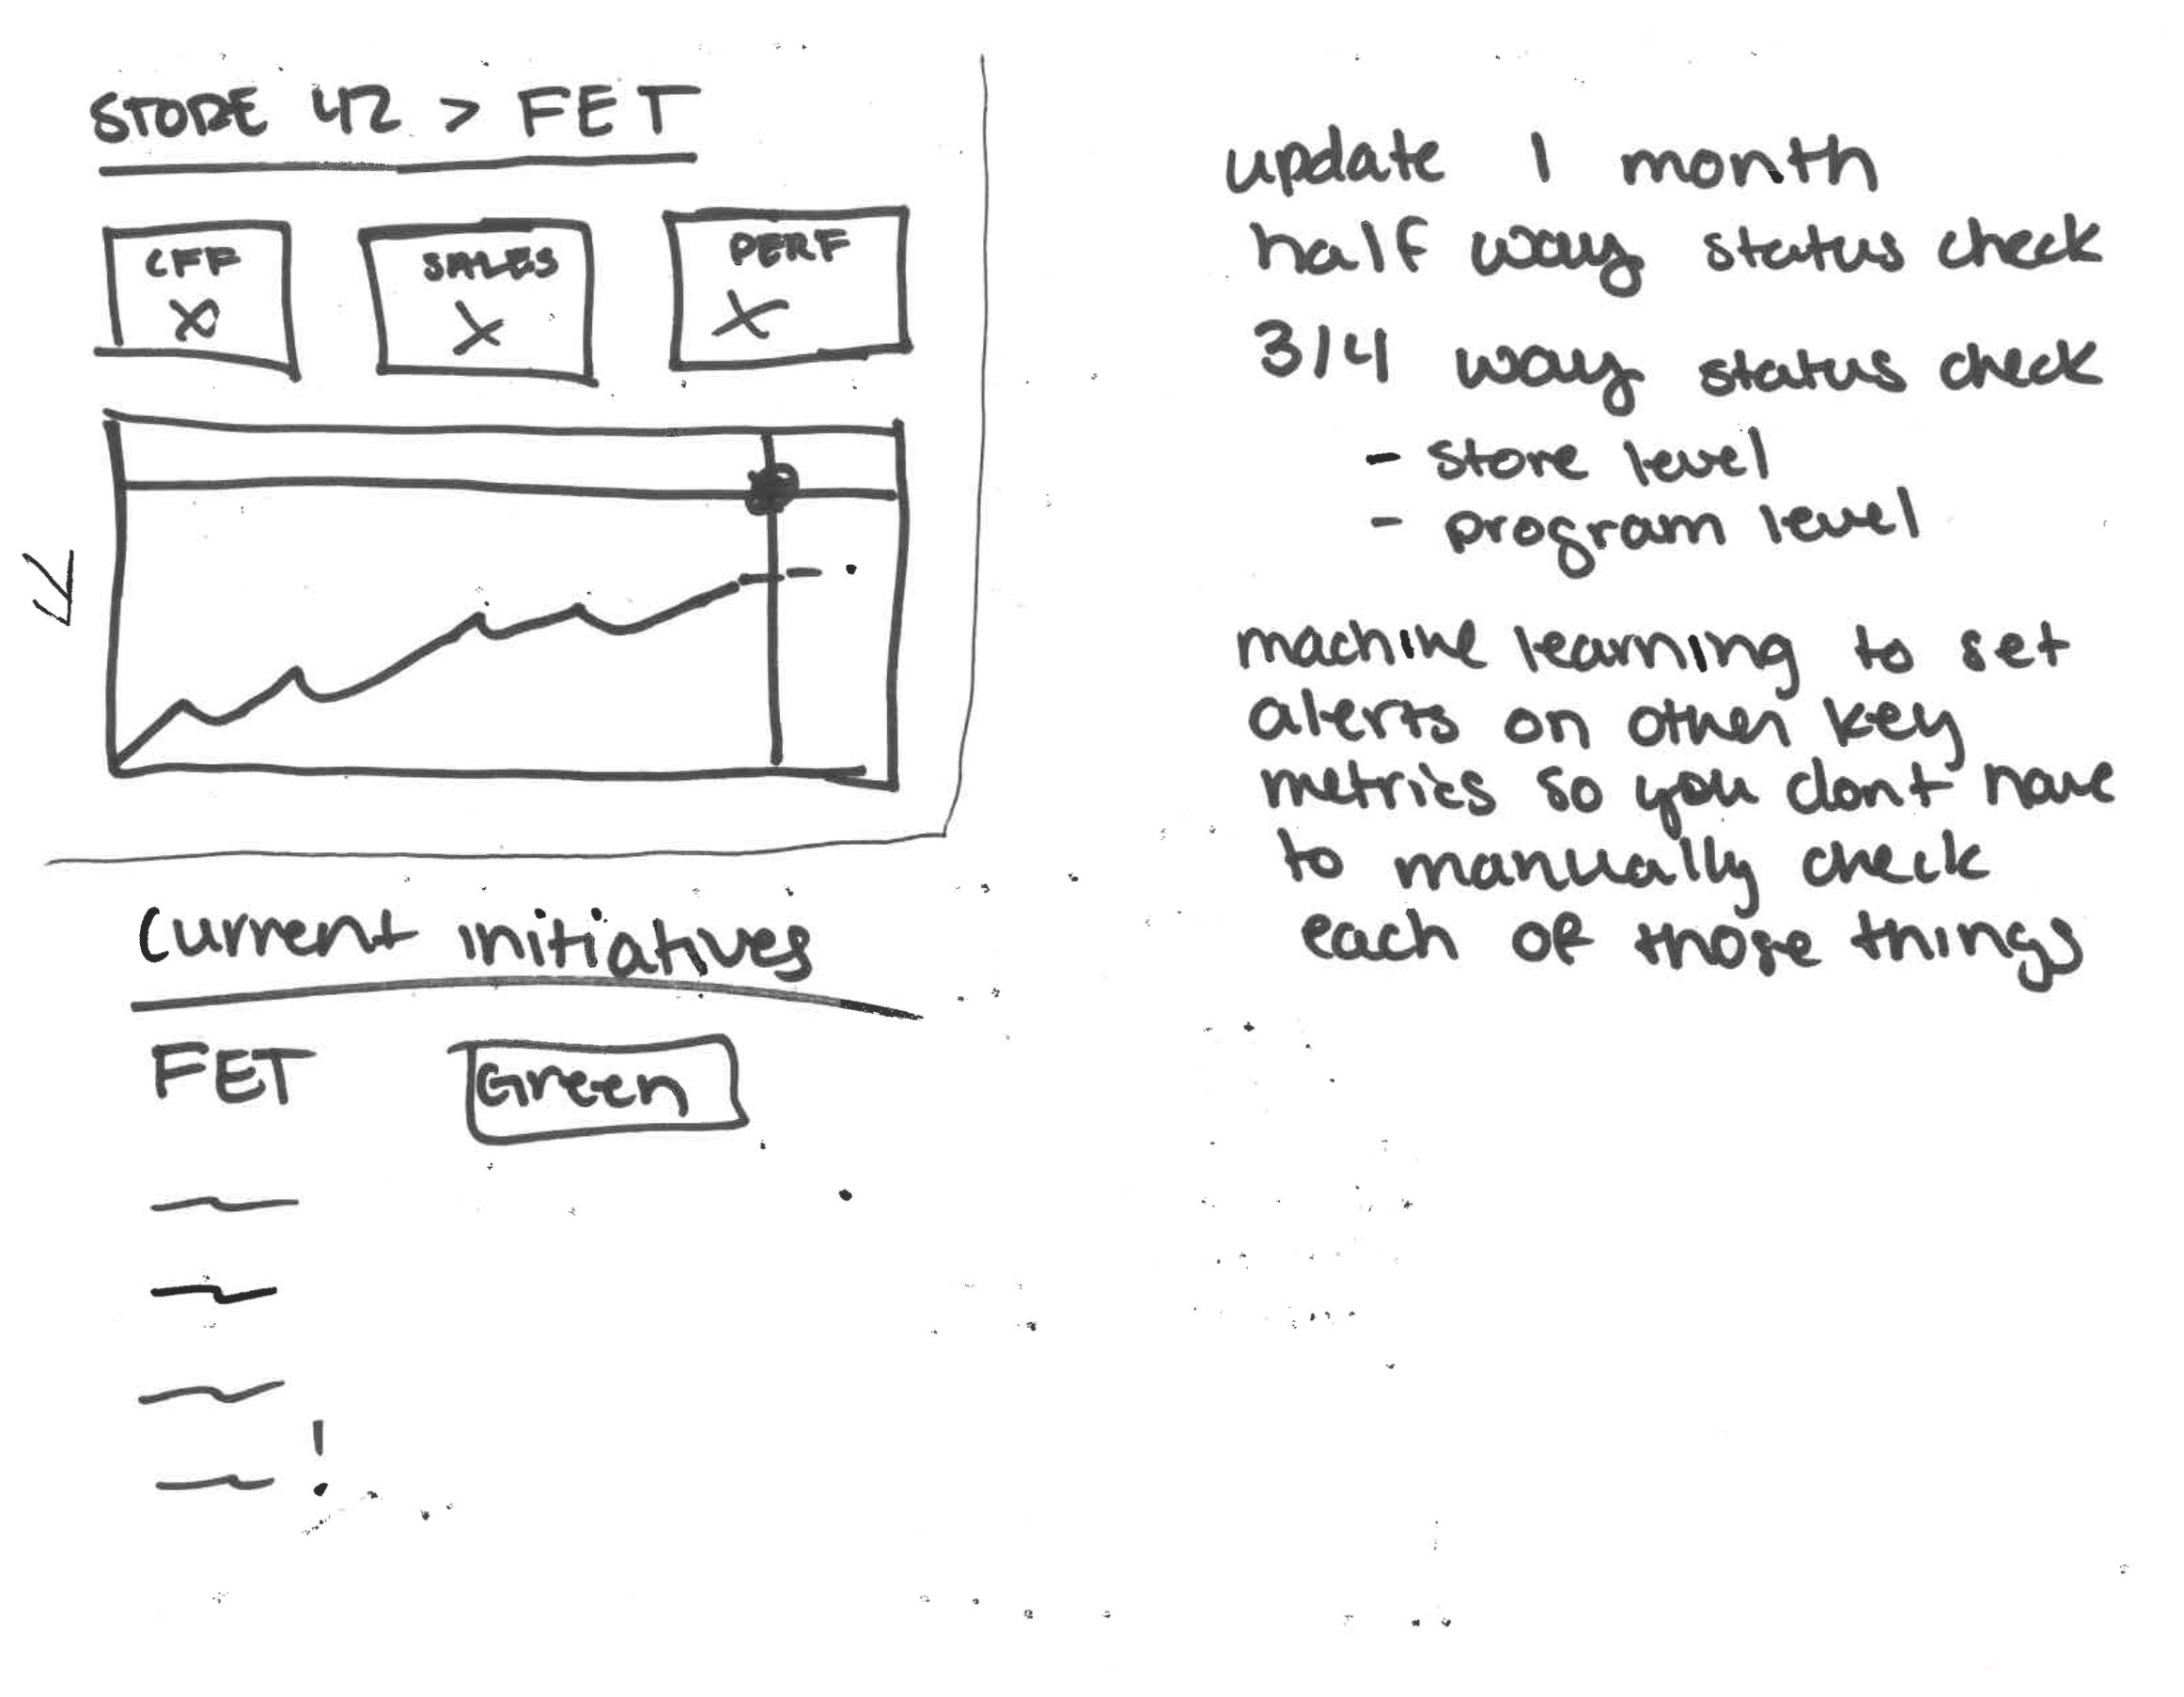 STORE 42 > FET
CFF
X
SALES
X
PERF
X
Current initiatives
FET Green
!
update 1 month
half way status check
3/4 way status check
- store level
- program level
machine learning to set
alerts on other key
metrics so you dont have
to manually check
each of those things